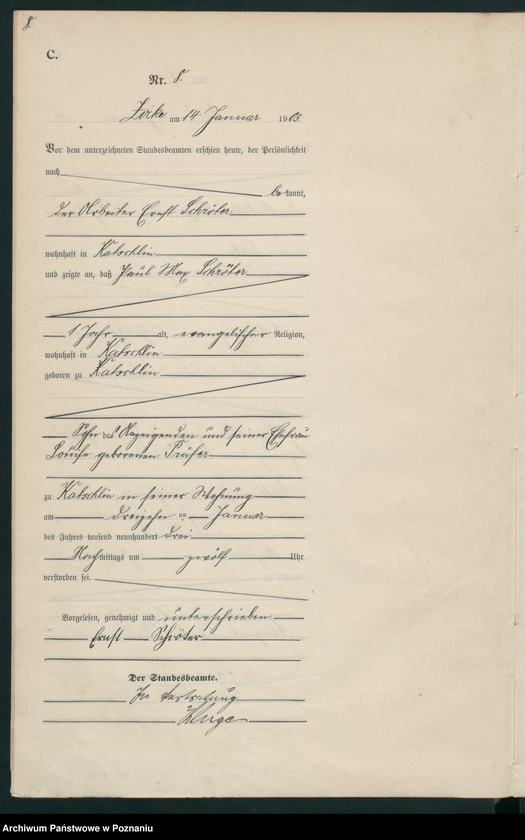 8.
C.
Nr. 8.
am 14 Januar 1903.
Vor dem unterzeichneten Standesbeamten erschien heute, der Persönlichkeit
nach
bekannt,
der Arbeiter Ernst Schröter
wohnhaft in Katschlin
und zeigte an, daß Paul Max Schröter
1 Jahr alt, evangelischer Religion,
wohnhaft in Katschlin
geboren zu Katschlin
Sohn des Anzeigenden und seiner Ehefrau
Louise geborenen Prüfer
zu Katschlin in seiner Wohnung
am dreizehn ten Januar
des Jahres tausend neunhundert drei
Nachmittags um zwölf Uhr
verstorben sei.
Vorgelesen, genehmigt und unterschrieben
Ernst Schröter
Der Standesbeamte.
In Vertretung
Archiwum Państwowe w Poznaniu